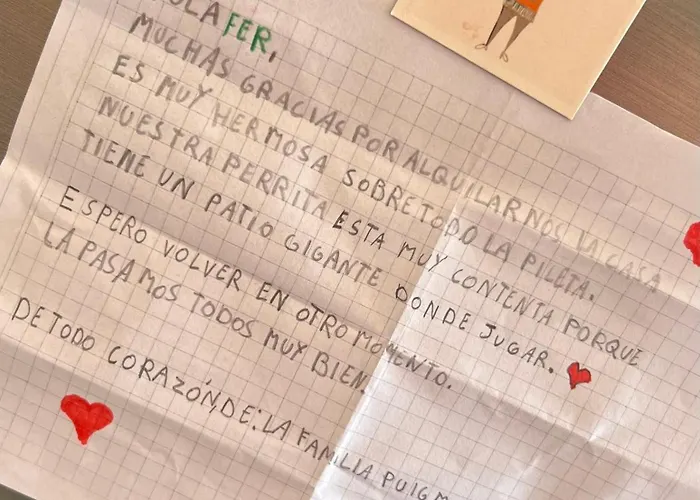 FER,
MUCHAS GRACIAS POR ALQUILARNOS LA CASA
ES MUY HERMOSA SOBRETODO LA PILETA.
NUESTRA PERRITA ESTA MUY CONTENTA PORQUE
TIENE UN PATIO GIGANTE DONDE JUGAR.
ESPERO VOLVER EN OTRO MOMENTO.
LA PASAMOS TODOS MUY BIEN.
DE TODO CORAZÓN, DE: LA FAMILIA PUIG